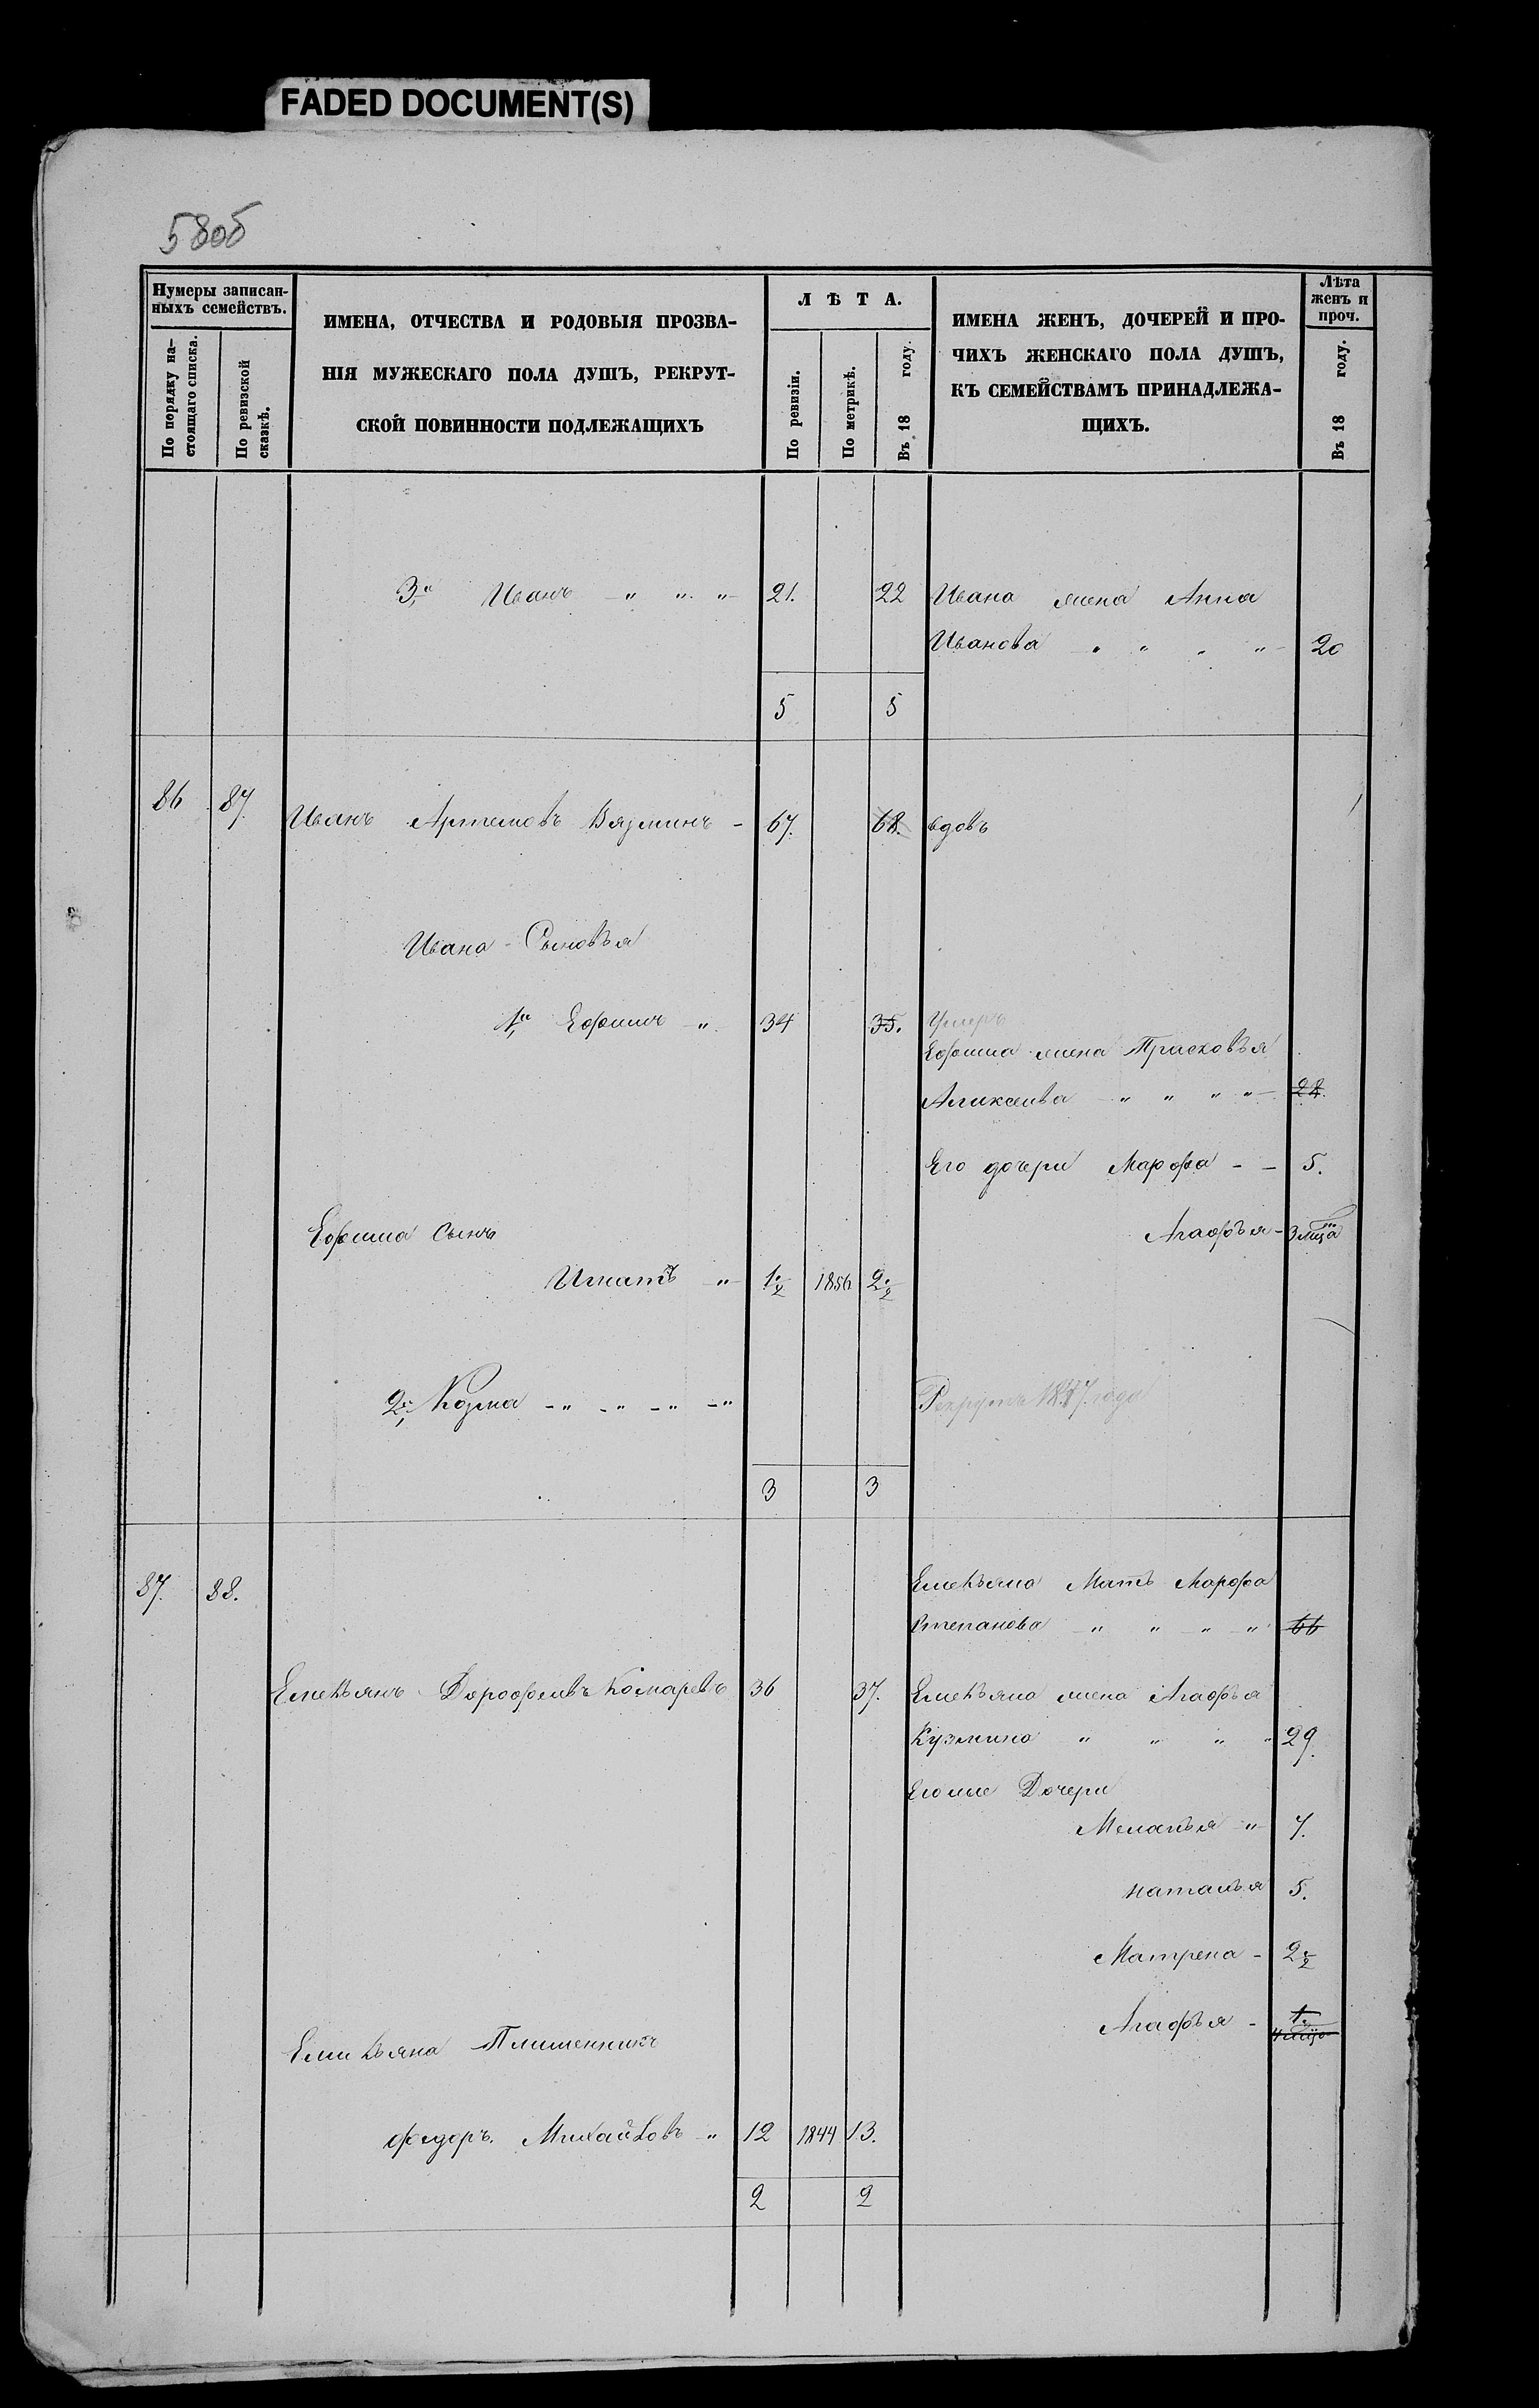 FADED DOCUMENT(S)
58об
Нумеры записан-
ныхъ семействъ.
По порядку на-
стоящаго списка.
По ревизской
сказкѣ.
ИМЕНА, ОТЧЕСТВА И РОДОВЫЯ ПРОЗВА-
НІЯ МУЖЕСКАГО ПОЛА ДУШЪ, РЕКРУТ-
СКОЙ ПОВИННОСТИ ПОДЛЕЖАЩИХЪ
ЛѢТА.
По ревизіи.
По метрикѣ.
Въ 18 году.
ИМЕНА ЖЕНЪ, ДОЧЕРЕЙ И ПРО-
ЧИХЪ ЖЕНСКАГО ПОЛА ДУШЪ,
КЪ СЕМЕЙСТВАМЪ ПРИНАДЛЕЖА-
ЩИХЪ.
Лѣта
женъ и
проч.
Въ 18 году.
3,й Иванъ - " " " 21. 22 Ивана жена Анна
Иванова " " " " 20
5 5
86 87. Иванъ Артемовъ Вязминъ - 67. 68. вдовъ
Ивана - Сыновья
1,й Ефимъ " 34 35. Умеръ
Ефима жена Прасковья
Алексеева " " " " 28.
Его дочери Марфа - - 5.
Ефима сынъ Агафья - 3 мца
Игнатъ " 1½ 1856 2½
2,й Козма " " " " Рекрутъ 1847 года
3 3
87. 88. Емельяна Мать Марфа
Степанова " " " " 66
Емельянъ Дорофеевъ Комаревъ 36 37. Емельяна жена Агафья
Кузмина " " " " 29.
Его же Дочери
Меланья " 7.
наталья 5.
Матрена - 2½
Агафья - 1.
4 мца
Емельяна Племенникъ
федоръ. Михайловъ " 12 1844 13.
2 2